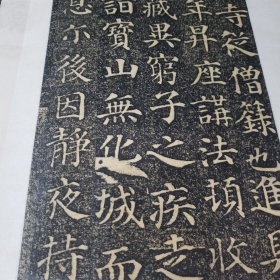 寺從僧籙也進
年昇座講法頓收
藏異窮子之疾走
詣寶山無化城而
息尒後因靜夜持